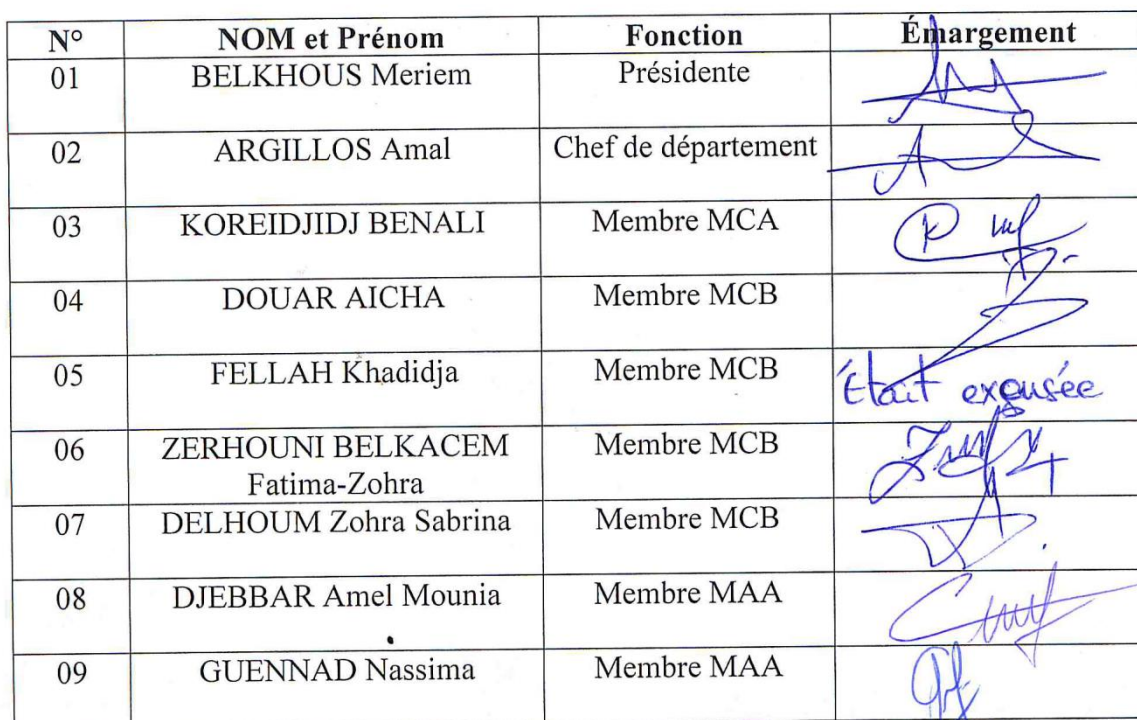 N° NOM et Prénom Fonction Émargement
01 BELKHOUS Meriem Présidente
02 ARGILLOS Amal Chef de département
03 KOREIDJIDJ BENALI Membre MCA
04 DOUAR AICHA Membre MCB
05 FELLAH Khadidja Membre MCB Était excusée
06 ZERHOUNI BELKACEM Membre MCB
Fatima-Zohra
07 DELHOUM Zohra Sabrina Membre MCB
08 DJEBBAR Amel Mounia Membre MAA
09 GUENNAD Nassima Membre MAA